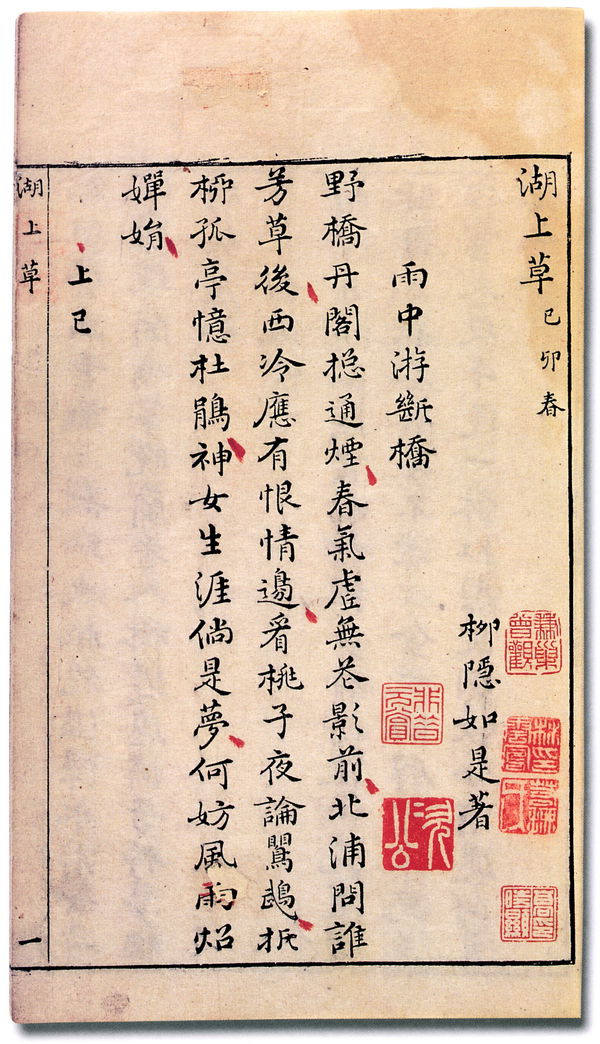 湖上草 己卯春
柳隱如是著
雨中游斷橋
野橋丹閣摠通煙春氣虛無花影前北浦問誰
芳草後西冷應有恨情邊看桃子夜論鸚鵡折
柳孤亭憶杜鵑神女生涯倘是夢何妨風雨炤
嬋娟
上巳
湖上草 一